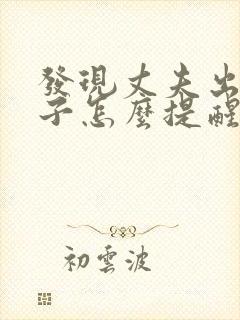 發現丈夫出
子怎麼提醒
初雲波